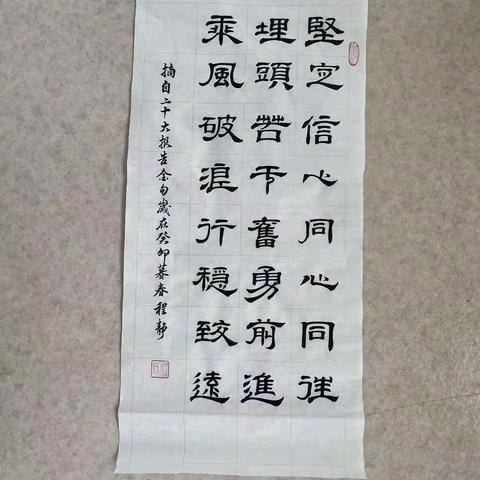 堅定信心同心同往
埋頭苦干奮勇前進
乘風破浪行穩致遠
摘自二十大报告金句歲在癸卯暮春程静